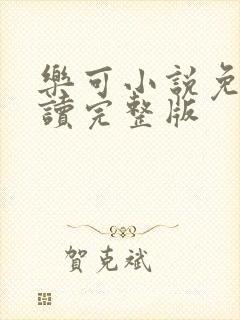 樂可小説免
讀完整版
賀克斌